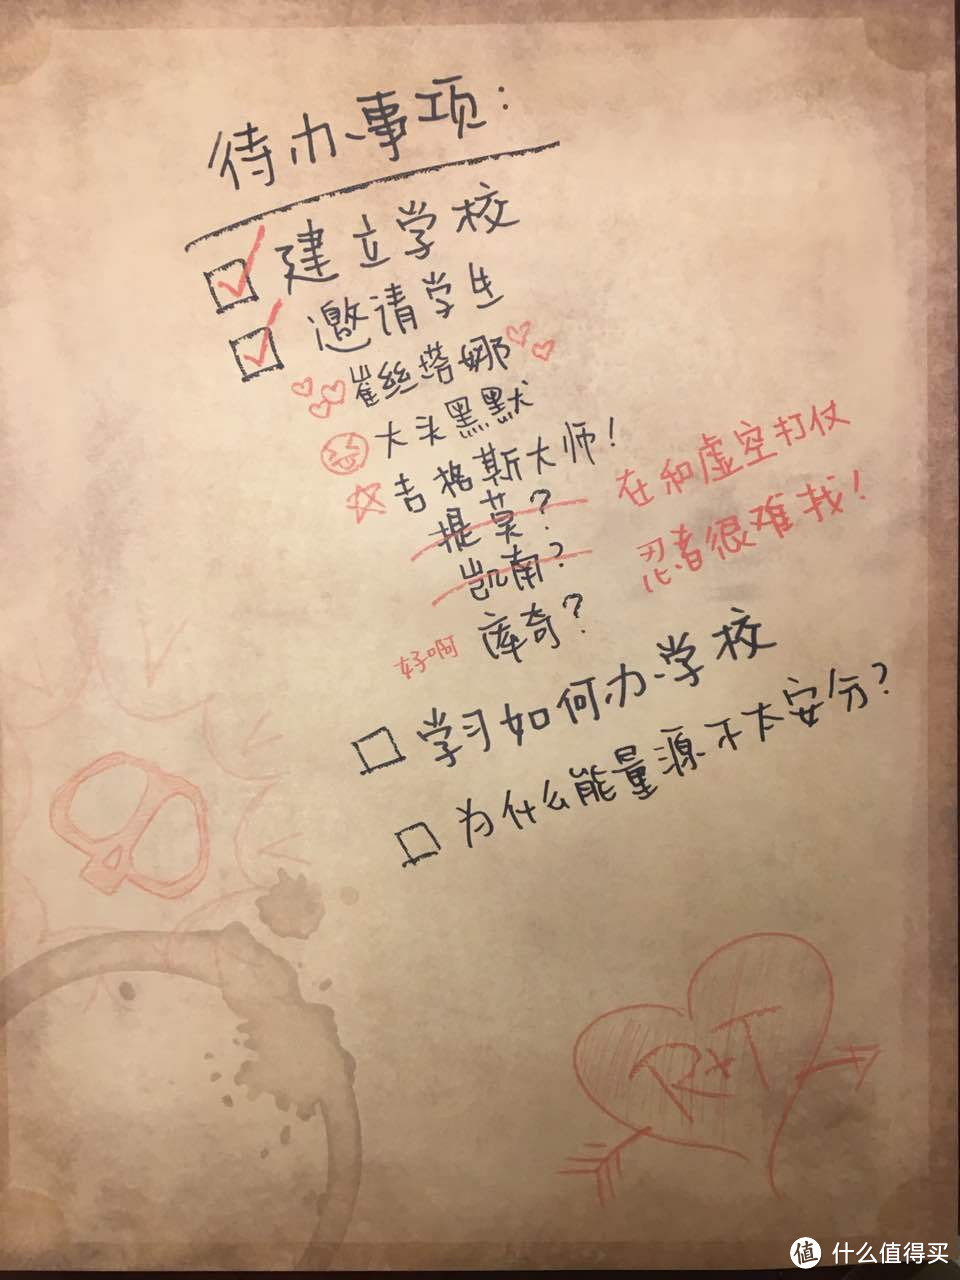 待办事项：
建立学校
邀请学生
崔丝塔娜
大头黑默
吉格斯大师！
提莫？ 在和虚空打仗
凯南？ 忍者很难找！
好啊 库奇？
学习如何办学校
为什么能量源不太安分？
R+T
值 什么值得买